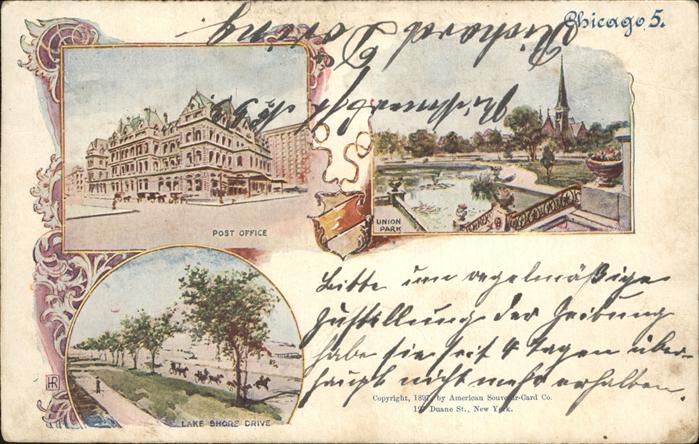 Chicago 5.
Richard Loring
POST OFFICE
UNION
PARK
Bitte um regelmäßige
Zustellung der Zeitung
habe sie seit 4 Tagen über-
haupt nicht mehr erhalten.
LAKE SHORE DRIVE
Copyright, 1897, by American Souvenir-Card Co.
127 Duane St., New York.
HR